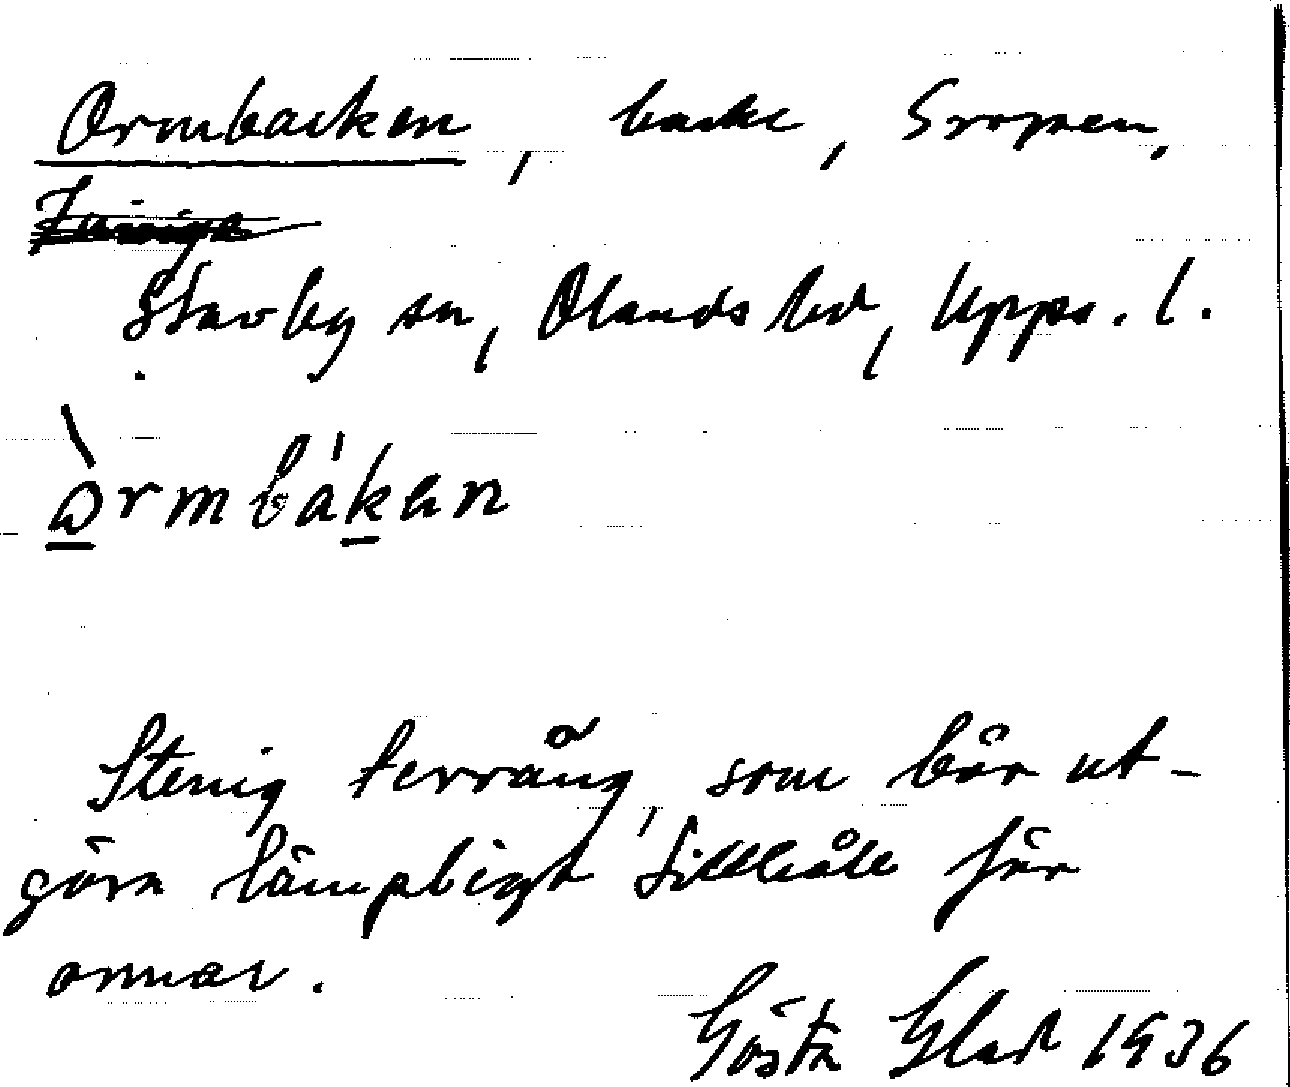 Ormbacken, backe, Sropen,
Stavby sn, Olands hd, Upps. l.
òrmbákan
Stenig terräng, som bör ut-
göra lämpligt tillhåll för
ormar.
Gösta Glad 1936